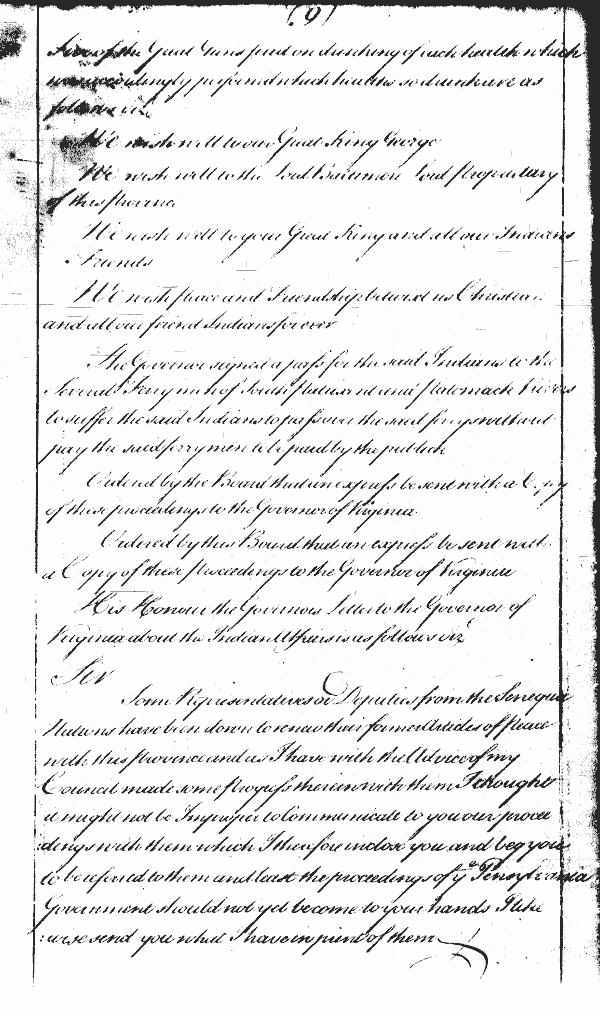 (9)
Five of the Great Guns fired on drinking of each health which
was accordingly performed which healths so drunk are as
follows viz.
We wish well to our Great King George
We wish well to the Lord Baltimore Lord Proprietary
of this province
We wish well to your Great King and all our Indians
Friends
We wish Peace and Friendship betwixt us Christians
and all our friend Indians for ever
The Governor signed a pass for the said Indians to the
Several Ferry men of South Patuxent and Patomack Rivers
to suffer the said Indians to pass over the said ferrys without
pay the said ferrymen to be paid by the publick
Ordered by the Board that an express be sent with a Copy
of these proceedings to the Governor of Virginia
Ordered by this Board that an express be sent with
a Copy of these Proceedings to the Governor of Virginia
His Honour the Governors Letter to the Governor of
Virginia about the Indian Affairs is as follows viz
Sir
Some Representatives or Deputies from the Senequa
Nations have been down to renew their former Articles of Peace
with this Province and as I have with the Advice of my
Council made some progress therein with them I thought
it might not be Improper to Communicate to you our procee
dings with them which I therefore inclose you and beg you
to be referred to them and least the proceedings of ye Pensylvania
Government should not yet be come to your hands I like
wise send you what I have in print of them